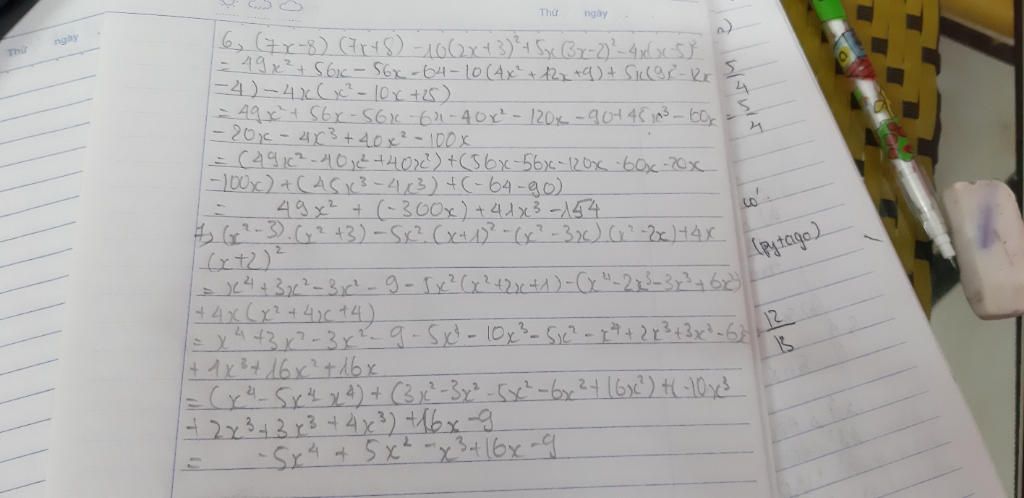 Thứ ngày
Thứ ngày
6, (7x-8) (7x+8) - 10(2x+3)² + 5x(3x-2)² - 4x(x-5)²
= 49x² + 56x - 56x - 64 - 10(4x² + 12x + 9) + 5x(9x² - 12x
- 4) - 4x(x² - 10x + 25)
= 49x² + 56x - 56x - 64 - 40x² - 120x - 90 + 45x³ - 60x
- 20x - 4x³ + 40x² - 100x
= (49x² - 40x² + 40x²) + (56x - 56x - 120x - 60x - 20x
- 100x) + (45x³ - 4x³) + (-64 - 90)
= 49x² + (-300x) + 41x³ - 154
7, (x² - 3).(x² + 3) - 5x².(x+1)² - (x² - 3x)(x² - 2x) + 4x
(x+2)²
= x⁴ + 3x² - 3x² - 9 - 5x²(x² + 2x + 1) - (x⁴ - 2x³ - 3x³ + 6x²)
+ 4x(x² + 4x + 4)
= x⁴ + 3x² - 3x² - 9 - 5x⁴ - 10x³ - 5x² - x⁴ + 2x³ + 3x³ - 6x²
+ 4x³ + 16x² + 16x
= (x⁴ - 5x⁴ - x⁴) + (3x² - 3x² - 5x² - 6x² + 16x²) + (-10x³
+ 2x³ + 3x³ + 4x³) + 16x - 9
= -5x⁴ + 5x² - x³ + 16x - 9
5
4
= 5
4
có:
(pytago)
12
13